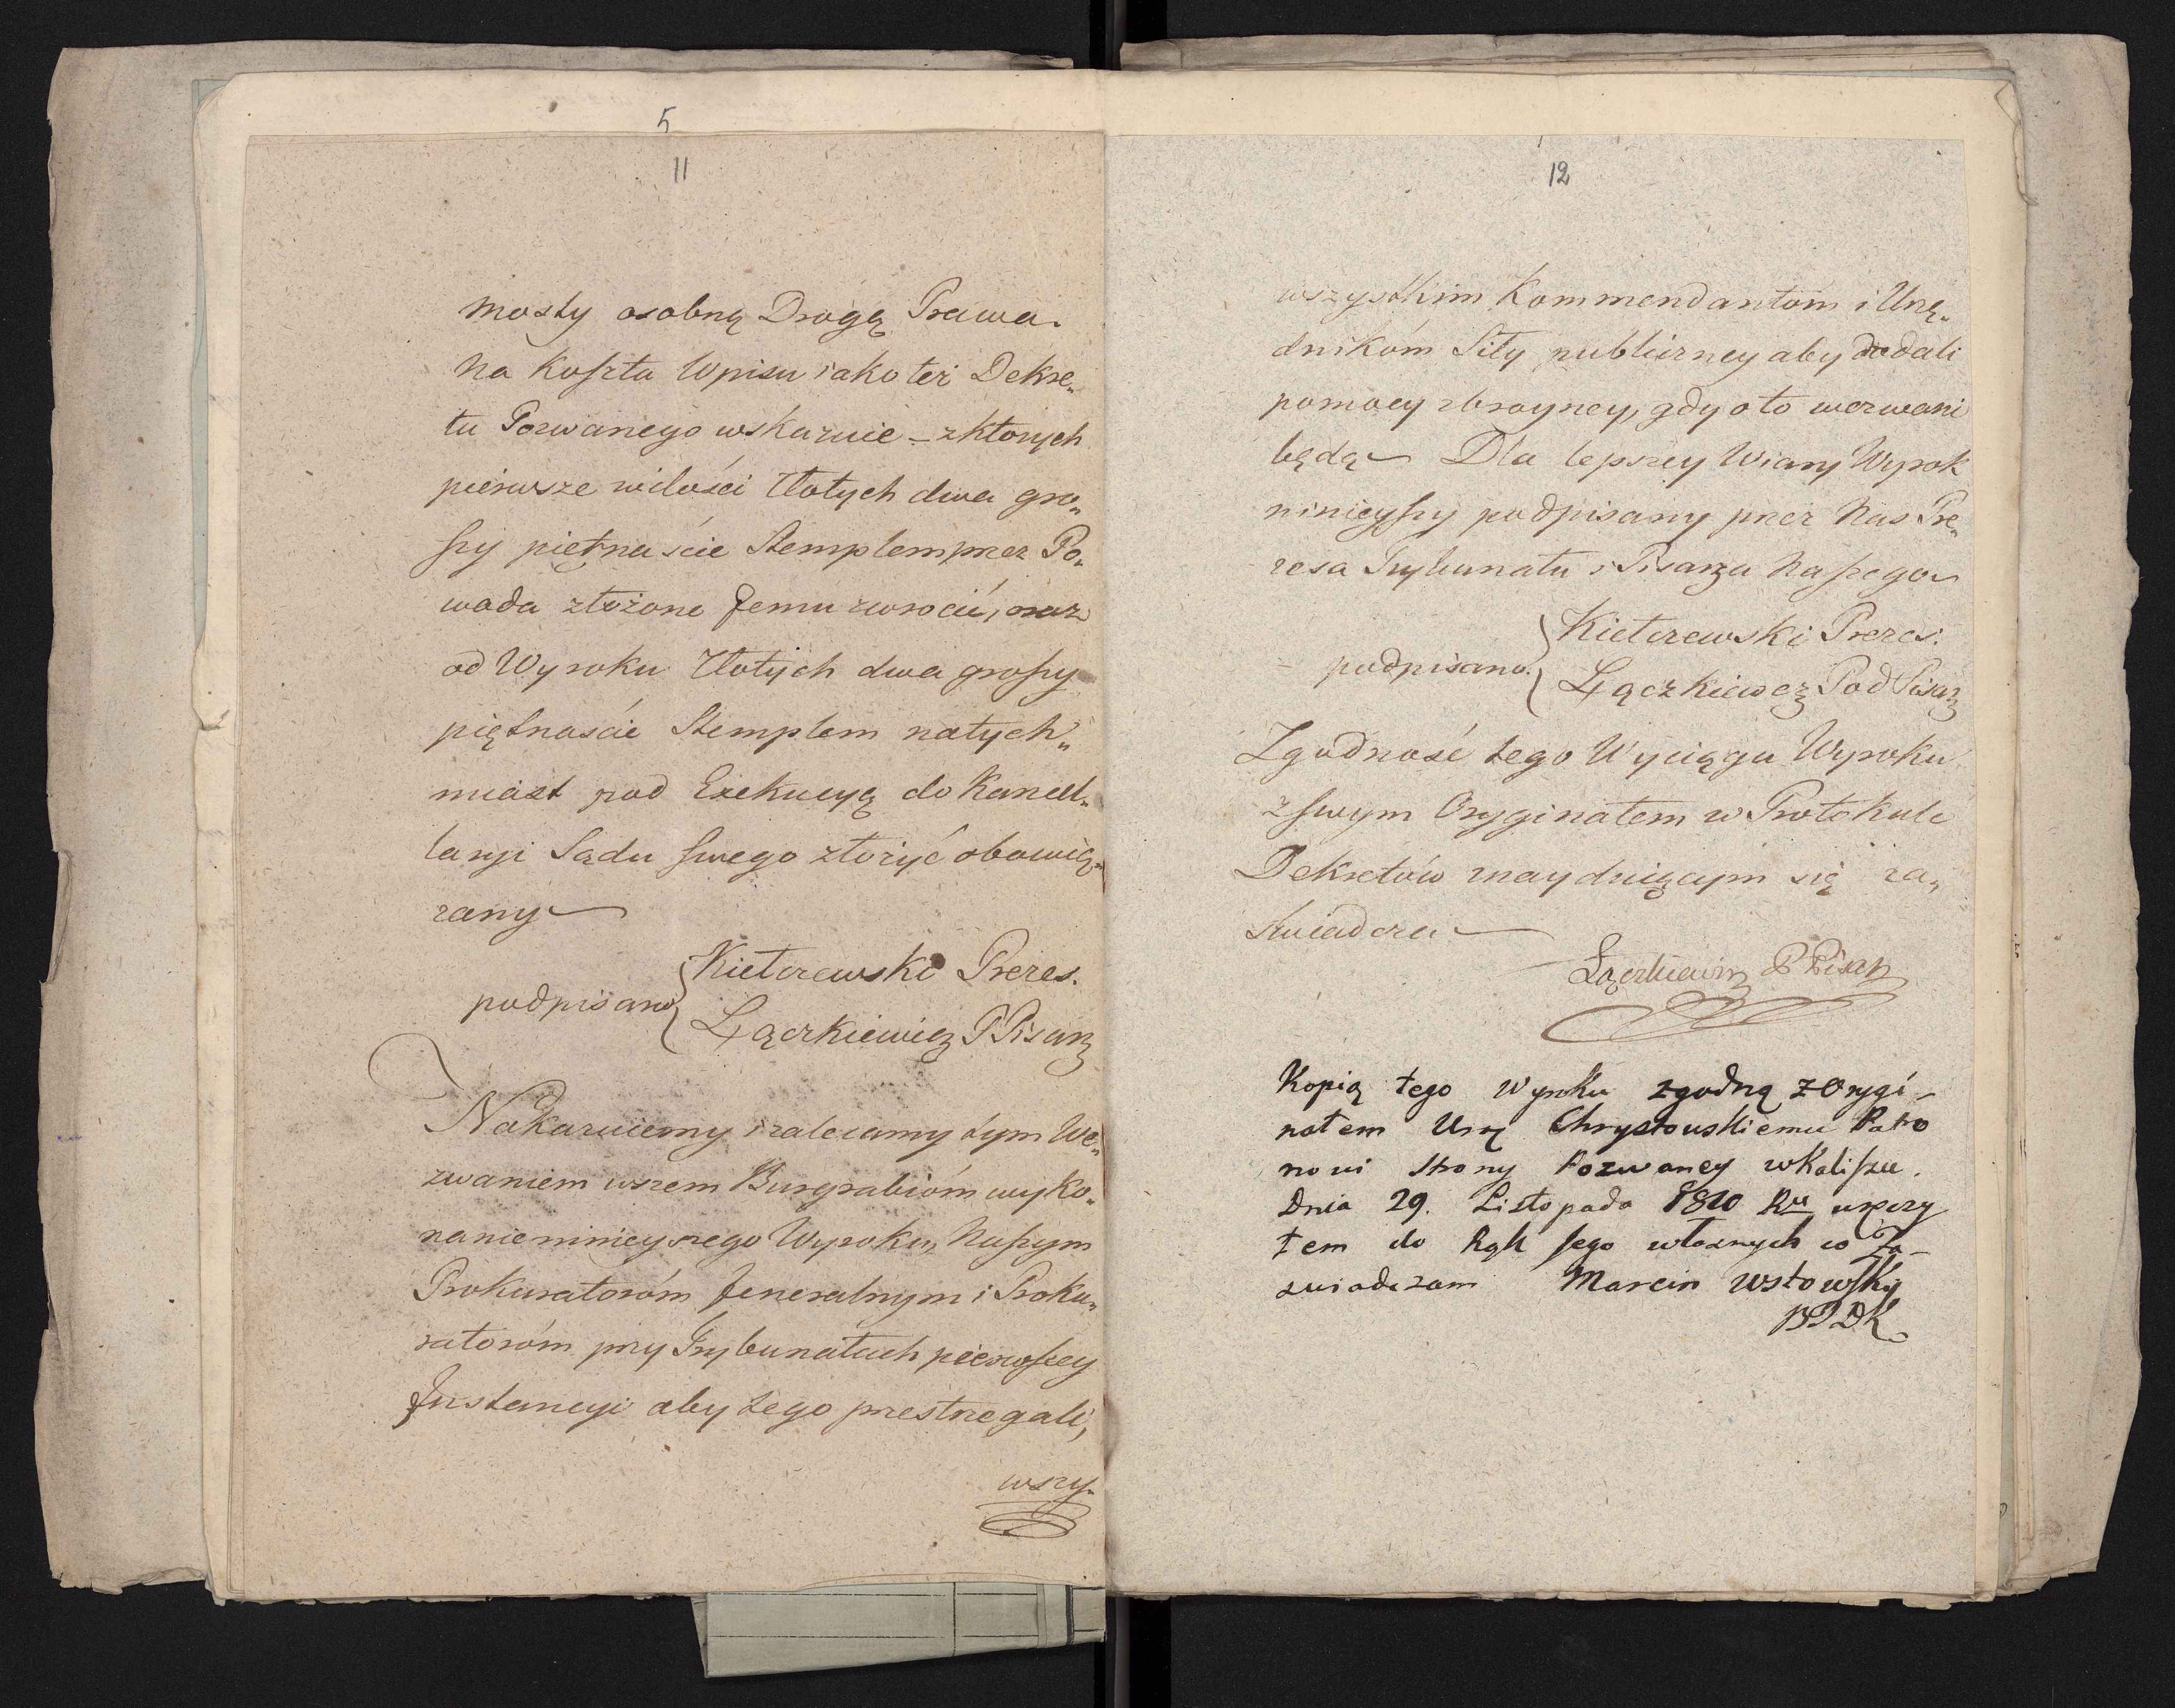 5
11
mosty osobną Drogą Prawa.
Na Koszta Wpisu iako też Dekre„
tu Pozwanego wskazuie – z ktorych
pierwsze wilości Złotych dwa gro„
szy piętnaście Stemplem przez Po„
woda złożone Jemu zwrocić, oraz
od Wyroku Złotych dwa groszy
piętnaście Stemplem natych„
miast pod Exekucyą do Kancel„
laryi Sądu swego złożyć obowią„
zany
Kiełczewski Prezes.
podpisano
Łączkiewicz PPisarz
Nakazuiemy i zalecamy tym We„
zwaniem wszem Burgrabióm wyko„
nanie ninieyszego Wyroku, Naszym
Prokuratoróm Jeneralnym i Proku„
ratoróm przy Trybunałach pierwszey
Instancyi aby tego przestrzegali,
wszy„
12
wszystkim Kommendantóm i Urzę„
dnikóm Siły publiczney aby dodali
pomocy zbroyney, gdy o to wezwani
będą Dla lepszey Wiary Wyrok
ninieyszy podpisany przez Nas Pre„
zesa Trybunału i Pisarza Naszego
Kiełczewski Prezes.
podpisano.
Łączkiewicz PodPisarz
Zgodność tego Wyciągu Wyroku
z swym Oryginałem w Protokule
Dekretów znayduiącym się za„
świadcza
Łączkiewicz P Pisarz
Kopią tego Wyroku zgodną z Orygi-
nałem Urz Chrystowskiemu Patro
nowi Strony Pozwaney w Kaliszu.
Dnia 29. Listopada 1810 Ru wręczy
łem do Rąk Jego własnych co Za-
swiadczam Marcin Wstowsky
BPDK